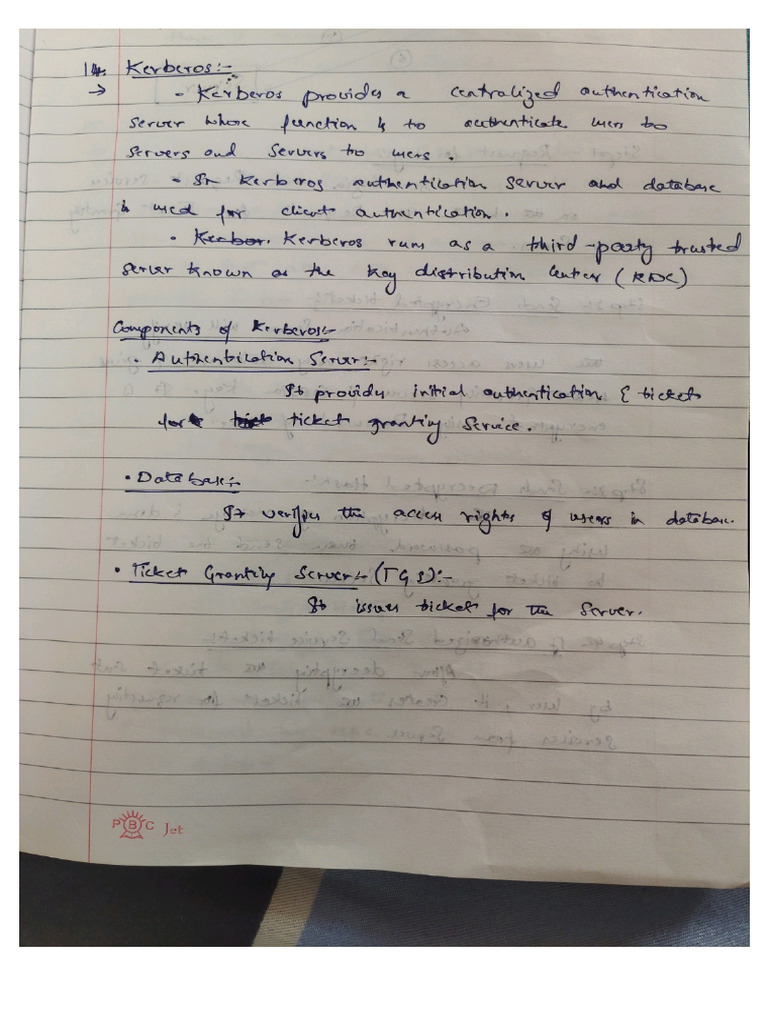 14. Kerberos:-
→ • Kerberos provides a centralized authentication
server whose function is to authenticate users to
servers and servers to users.
• In Kerberos authentication server and database
is used for client authentication.
• Kerberos runs as a third-party trusted
server known as the key distribution center (KDC)
Components of Kerberos:-
• Authentication Server:-
It provides initial authentication & tickets
for ticket granting service.
• Database:-
It verifies the access rights of users in database.
• Ticket Granting Server:- (TGS):-
It issues tickets for the Server.
PBC Jet